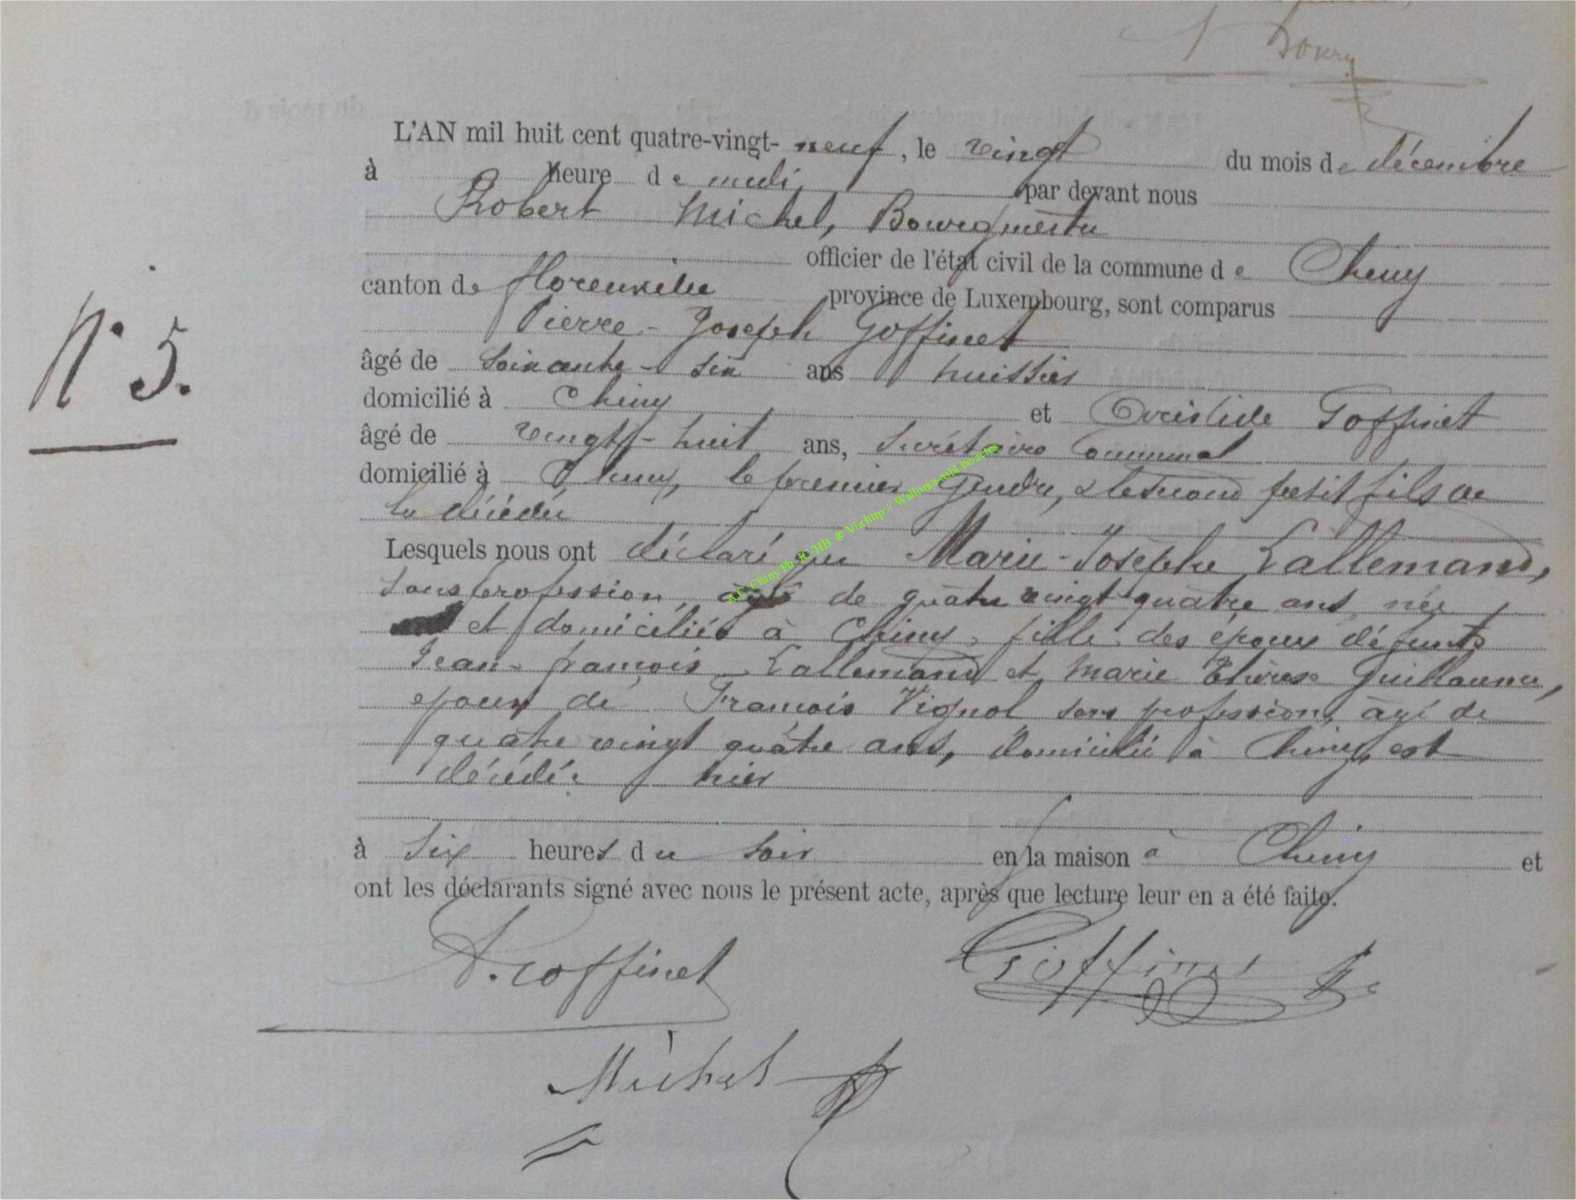 Doury
N° 5.
L'AN mil huit cent quatre-vingt- neuf, le vingt du mois de décembre
à heure de midi par devant nous
Robert Michel, Bourgmestre
officier de l'état civil de la commune de Chiny
canton de florenville province de Luxembourg, sont comparus
Pierre-Joseph Goffinet
âgé de soixante-six ans huissier
domicilié à Chiny et Aristide Goffinet
âgé de vingt-huit ans, secrétaire communal
domicilié à Chiny, le premier gendre, et le second petit fils de
la décédée
Lesquels nous ont déclaré que Marie-Josèphe Lallemand,
sans profession, âgée de quatre vingt quatre ans née
et domiciliée à Chiny, fille des époux défunts
Jean-françois Lallemand et marie thérèse Guillaume,
epouse de François Vignol sans profession, âgé de
quatre vingt quatre ans, domicilié à Chiny, est
décédée hier
à six heures du soir en la maison à Chiny et
ont les déclarants signé avec nous le présent acte, après que lecture leur en a été faite.
A. Goffinet Goffinet
Michel